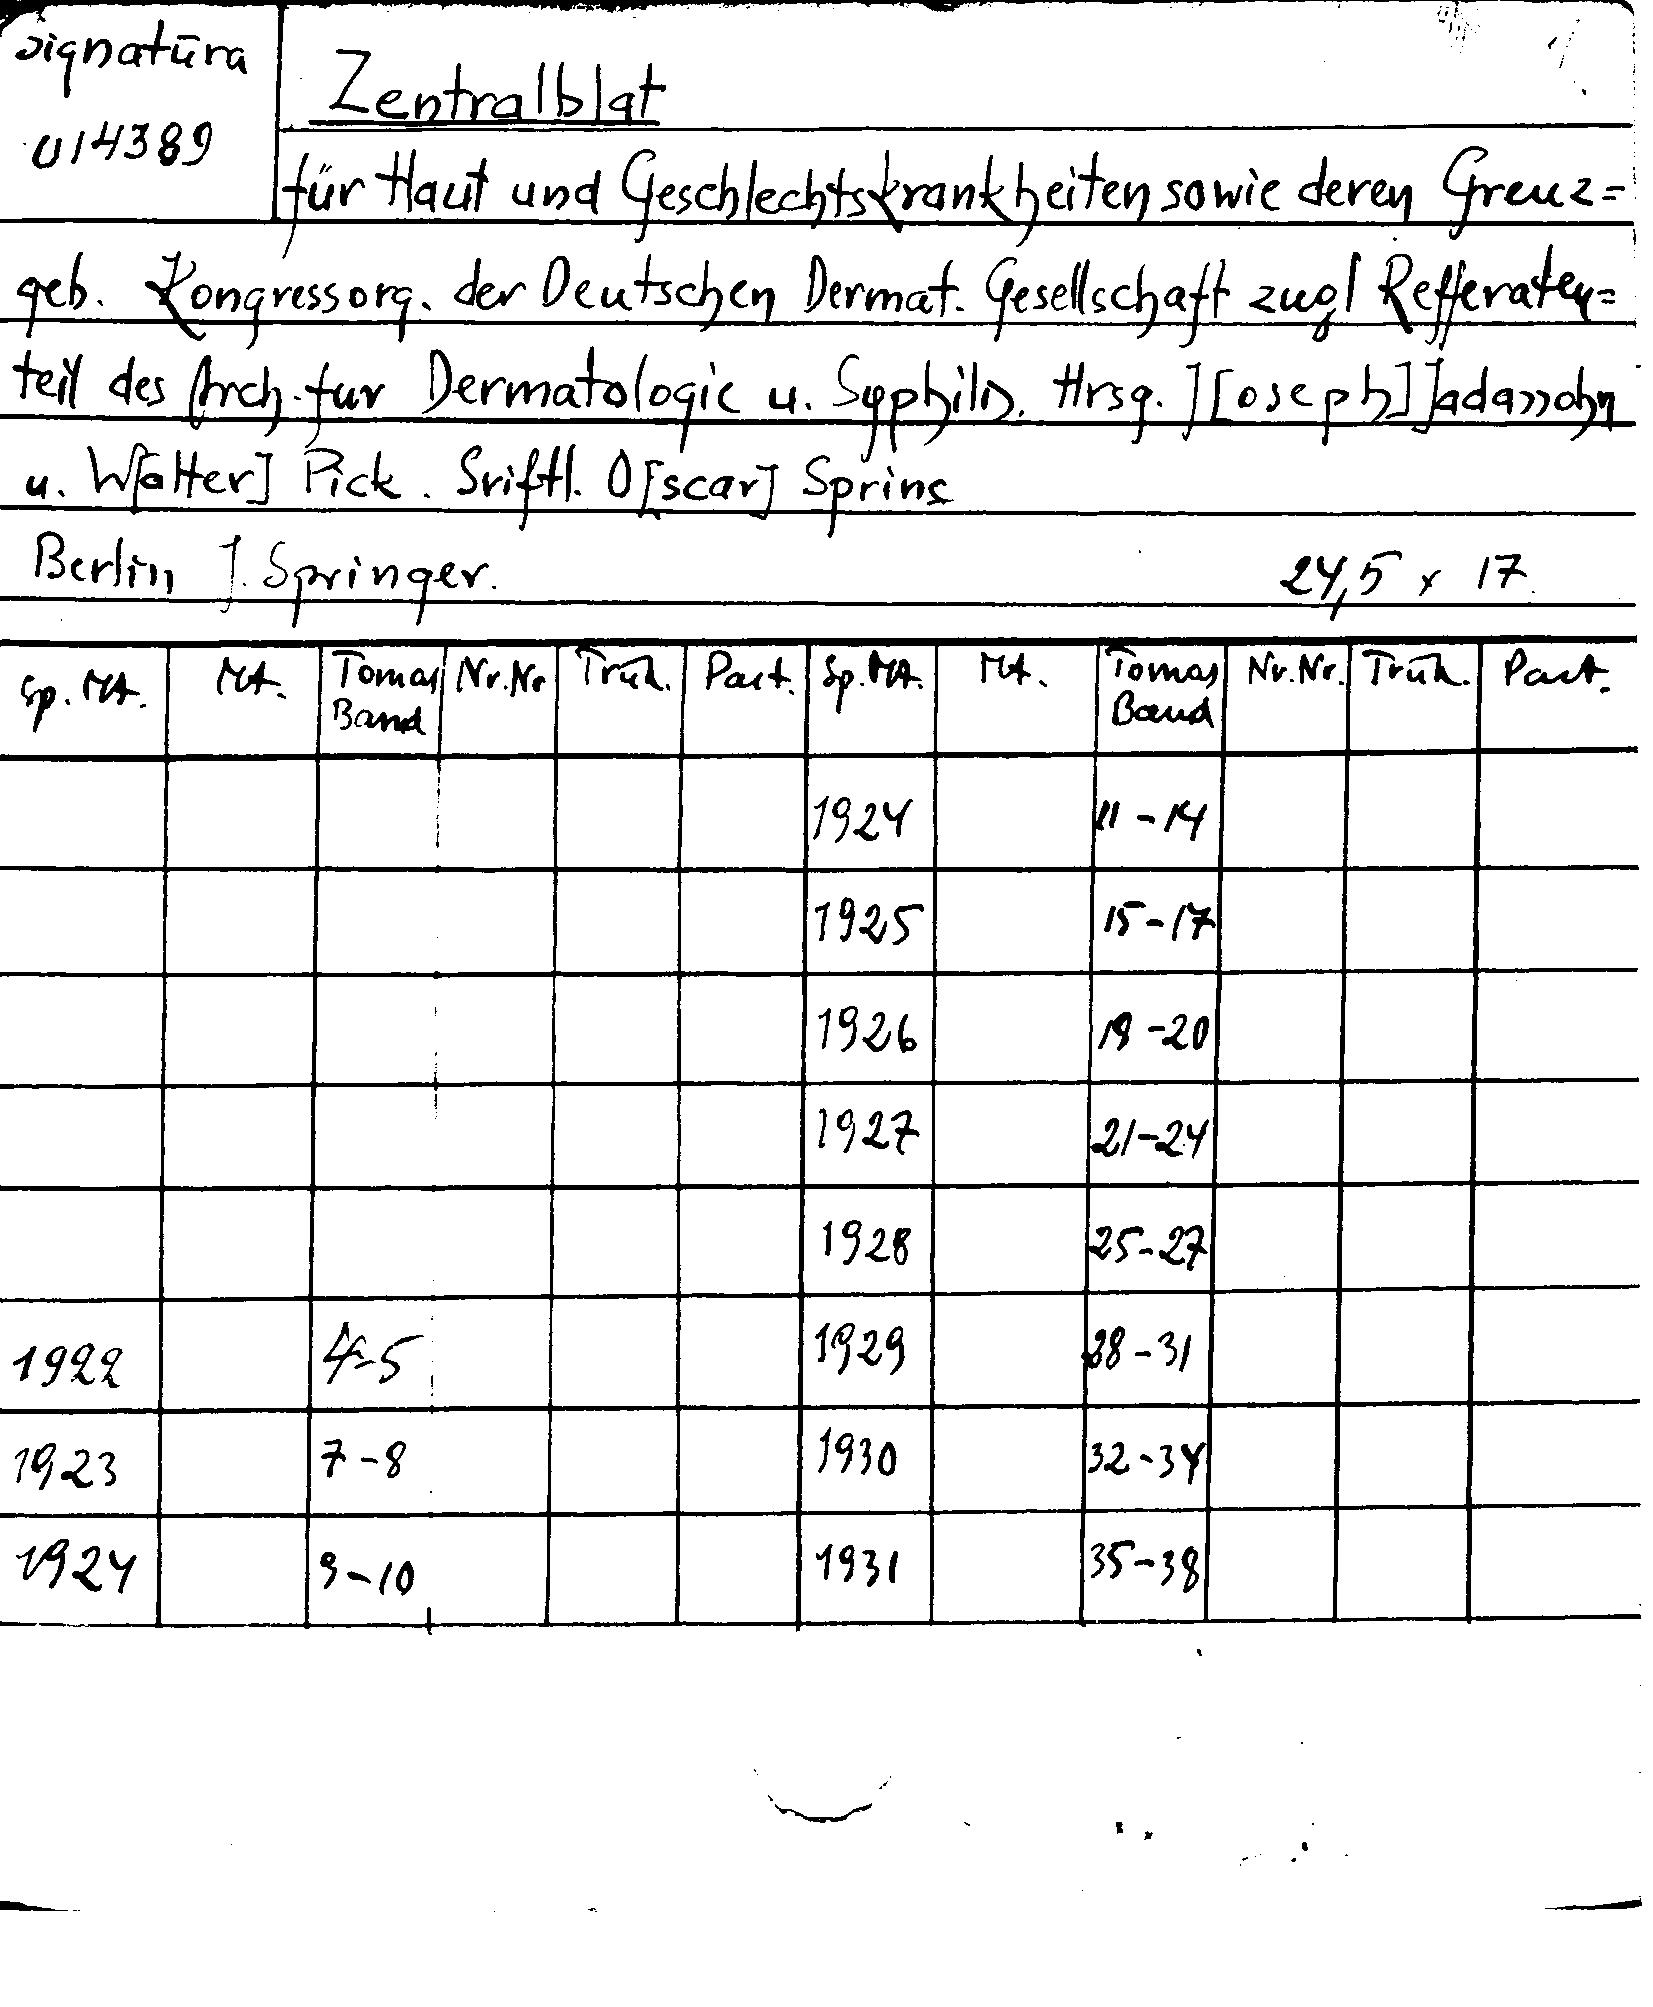 Signatūra
U14389
Zentralblat
für Haut und Geschlechtskrankheiten sowie deren Grenz=
geb. Kongressorg. der Deutschen Dermat. Gesellschaft zugl Refferaten=
teil des Arch. fur Dermatologie u. Syphilis. Hrsg. J[oseph] Jadassohn
u. W[alter] Pick. Sriftl. O[scar] Sprinc
Berlin J. Springer. 24,5 x 17
Sp. Mt. Mt. Tomas Band Nr. Nr Trūk. Past. Sp. Mt. Mt. Tomas Band Nr. Nr. Trūk. Past.
1924 11-14
1925 15-17
1926 18-20
1927 21-24
1928 25-27
1922 4-5 1929 28-31
1923 7-8 1930 32-34
1924 9-10 1931 35-38